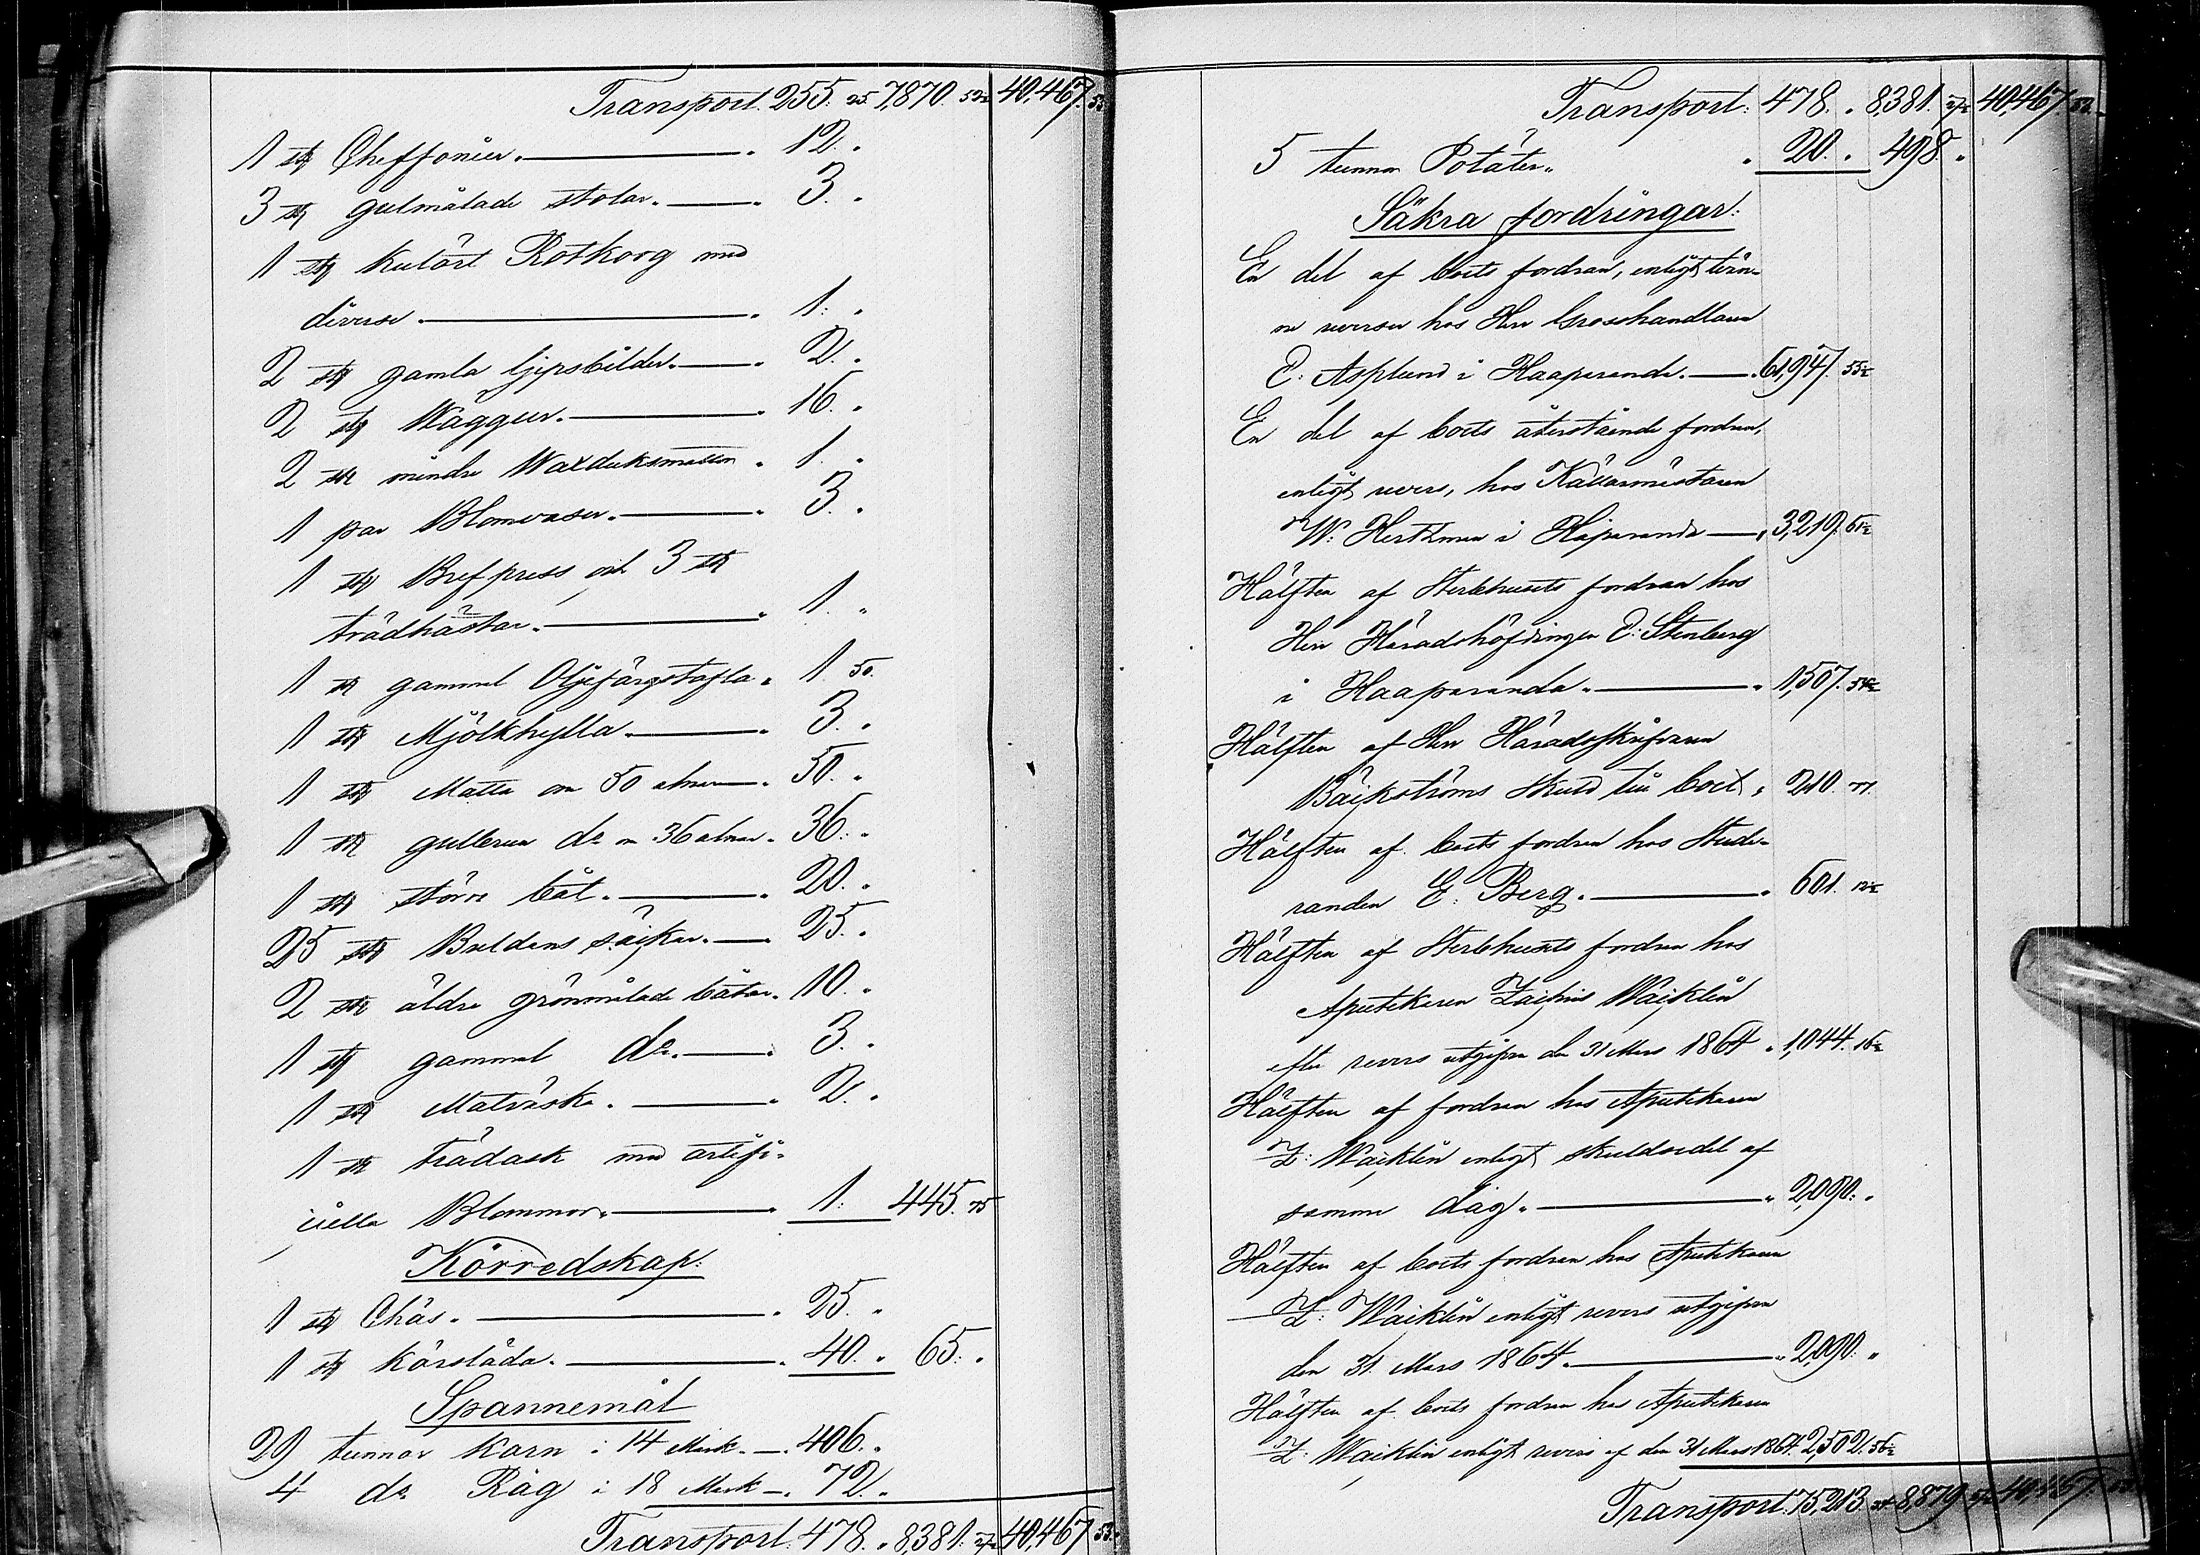 Transport. 255. 25. 7,870. 52½ 40,467. 53.
1 st Cheffonier. — „ 12. „
3 st gulmålade stolar. — „ 3. „
1 st kulört Rotkorg med
diverse. — „ 1. „
2 st gamla gipsbilder. — „ 2. „
2 st Väggur. — „ 16. „
2 st mindre Waxduksmattor „ 1. „
1 par Blomvaser. — „ 3. „
1 st Brefpress och 3 st
trädhästar. — „ 1. „
1 st gammal Oljefärgstafla „ 1. 50.
1 st Mjölkhylla. — „ 3. „
1 st Matta om 50 alnar — „ 50. „
1 st d:o 36 alnar „ 36. „
1 st större båt. — „ 20. „
25 st Buldans säckar. — „ 25. „
2 st äldre grönmålade båtar. 10. „
1 st gammal d:o. — „ 3. „
1 st Matväska. — „ 2. „
1 st Trädask med artifi-
ciella Blommor. — „ 1. 445. 75
Körredskap.
1 st Chäs. — „ 25. „
1 st kärslåda. — „ 40. „ 65. „
Spannemål
29 tunnor korn i 14 Mark. — „ 406. „
4 d:o Råg i 18 Mark — „ 72. „
Transport. 478. „ 8,381. 27½ 40,467 53.
Transport: 478. „ 8,381. 27½ 40,467. 53.
5 tunnor Potäter. „ 20. „ 498. „
Säkra fordringar:
En del af boets fordran, enligt tvän-
ne reverser hos Herr Grosshandlaren
C. Asplund i Haaparanda. — „ 61,947. 55½
En del af boets återstående fordran,
enligt revers, hos Källarmästaren
W. Hertzman i Haparanda — „ 3,219. 51½
Hälften af Sterbhusets fordran hos
Herr Häradshöfdingen C. Stenberg
i Haaparanda. — „ 1,507. 54½
Hälften af Herr Häradsskrifvaren
Bäckströms skuld till boet „ 210. 77.
Hälften af boets fordran hos Stude-
randen E. Berg. — „ 601. 12½
Hälften af Sterbhusets fordran hos
Apotekaren Waicklin
efter revers utgifven den 31 Mars 1864 „ 1,044. 16½
Hälften af fordran hos Apotekaren
Z. Waicklin enligt skuldsedel af
samma dag. — „ 2,090. „
Hälften af boets fordran hos Apotekaren
Z. Waicklin enligt revers utgifven
den 31 Mars 1864. — „ 2,090. „
Hälften af boets fordran hos Apotekaren
Z. Waicklin enligt revers af den 31 Mars 1864. 2,502. 56½
Transport. 75,213. 8,879. 40,467.